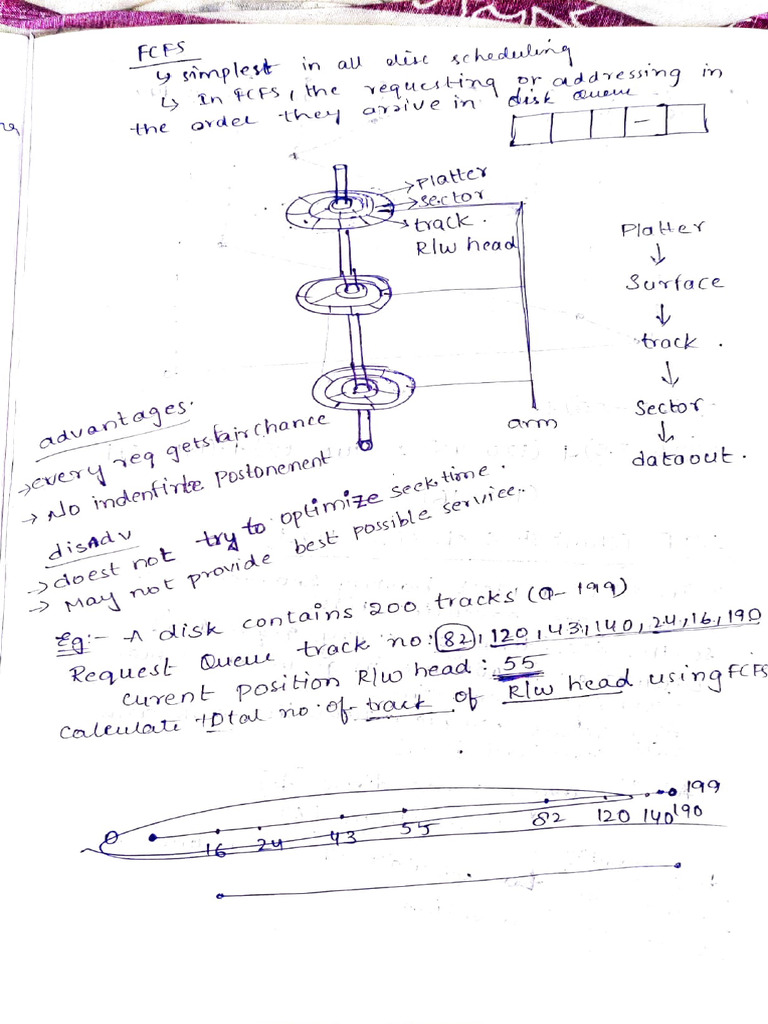 FCFS
↳ simplest in all disc scheduling
↳ In FCFS, the requesting or addressing in
the order they arrive in disk queue
Platter
sector
track.
R/w head
arm
Platter
↓
Surface
↓
track.
↓
Sector
↓
dataout.
advantages.
→ every req gets fair chance
→ No indenfinte Postonement
disadv
→ doest not try to optimize seek time.
→ May not provide best possible service.
Eg:- A disk contains 200 tracks (0-199)
Request Queue track no: 82, 120, 43, 140, 24, 16, 190
curent position R/w head: 55
calculate total no. of track of R/w head using FCFS
0 16 24 43 55 82 120 140 190 199